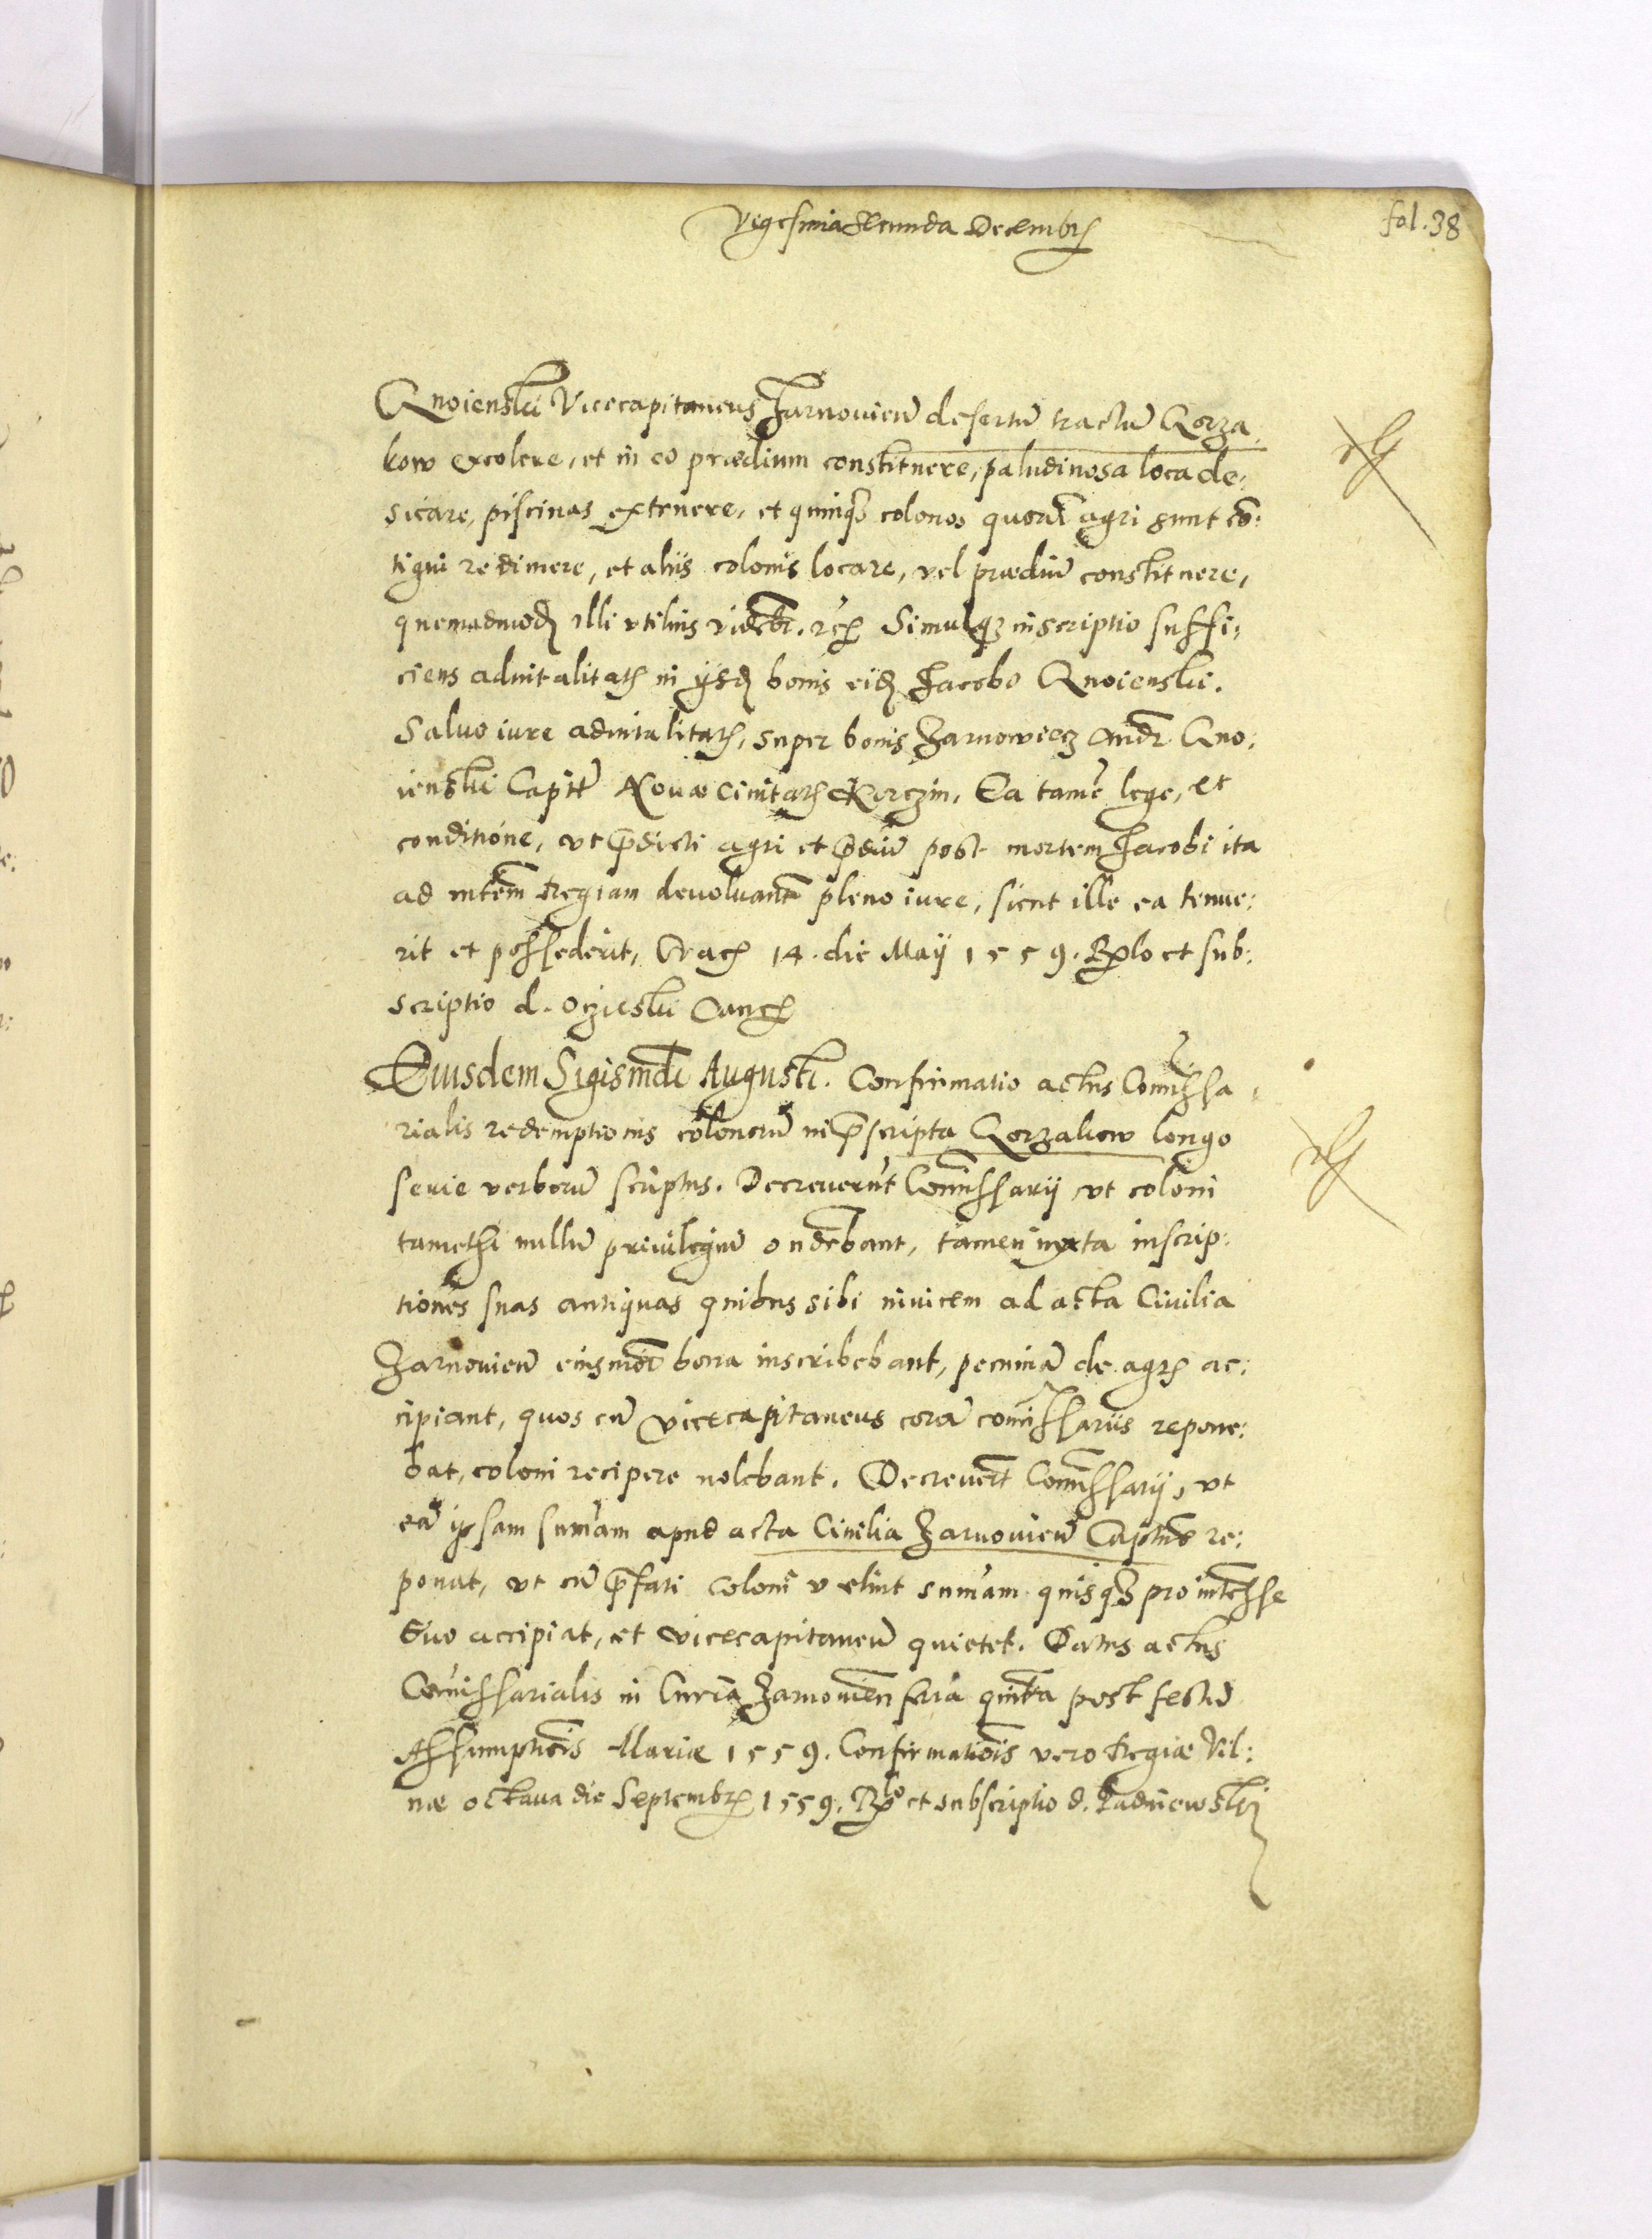 Vigesima Secunda Decembris
fol. 38
Gnoienski Vicecapitaneus Zarnovien̄ desertū tractū Gorza¸
kow excolere, et in eo prædium constituere, paludinosa loca de¸
sicare, piscinas extruere, et quinq; colonos quorū agri sunt cō:
tigui redimere, et aliis colonis locare, vel prædiū constituere,
quemadmodū illi vtilius videbr̄. etc̄ Simulq; inscriptio suffi¸
ciens advitalitatis in ijsd̄ bonis eid̄ Jacobo Gnoienski.
Salvo iure advitalitatis, super bonis Zarnowiecz Andr̄ Gno:
ienski Capit̄ Novæ Civitatis Korczin, Ea tamē lege, et
conditione, vt p̄dicti agri et p̄diū post mortem Jacobi ita
ad mt̄em Regiam devoluant̄ pleno iure, sicut ille ea tenue:
rit et possederit, Crac̄ 14. die Maij 1559. Rᵱlo et sub:
scriptio d. Oczieski Canc̄
Eiusdem Sigismd̄i Augusti. Confirmatio actus Com̄issa¸
rialis redemptionis colonorū in p̄scripta Gorzakow longo
serie verborū scriptus. Decreverūt Com̄issarij vt coloni
tametsi nullū privilegiū ondēbant, tamen iuxta inscrip:
tiones suas antiquas quibus sibi invicem ad acta Civilia
Zarnovien̄ eiusmōi bona inscribebant, pecuniā de agris ac:
cipiant, quos cū vicecapitaneus corā com̄issariis repone:
bat, coloni recipere nolebant. Decrevert̄ Com̄issarij, vt
eā ipsam sum̄am apud acta Civilia Zarnovien̄ Captnͤs re:
ponat, vt cū p̄fati coloni velint sum̄am quisq; pro intēsse
suo accipiat, et vicecapitaneū quietet. Datus actus
Com̄issarialis in Curia Zarnovien̄ feria quinta post festū
Assumptiōis Mariæ 1559. Confirmatiōis vero Regiæ Vil:
næ octava die Septembris 1559. Rᵱlo et subscriptio d. Padniewski